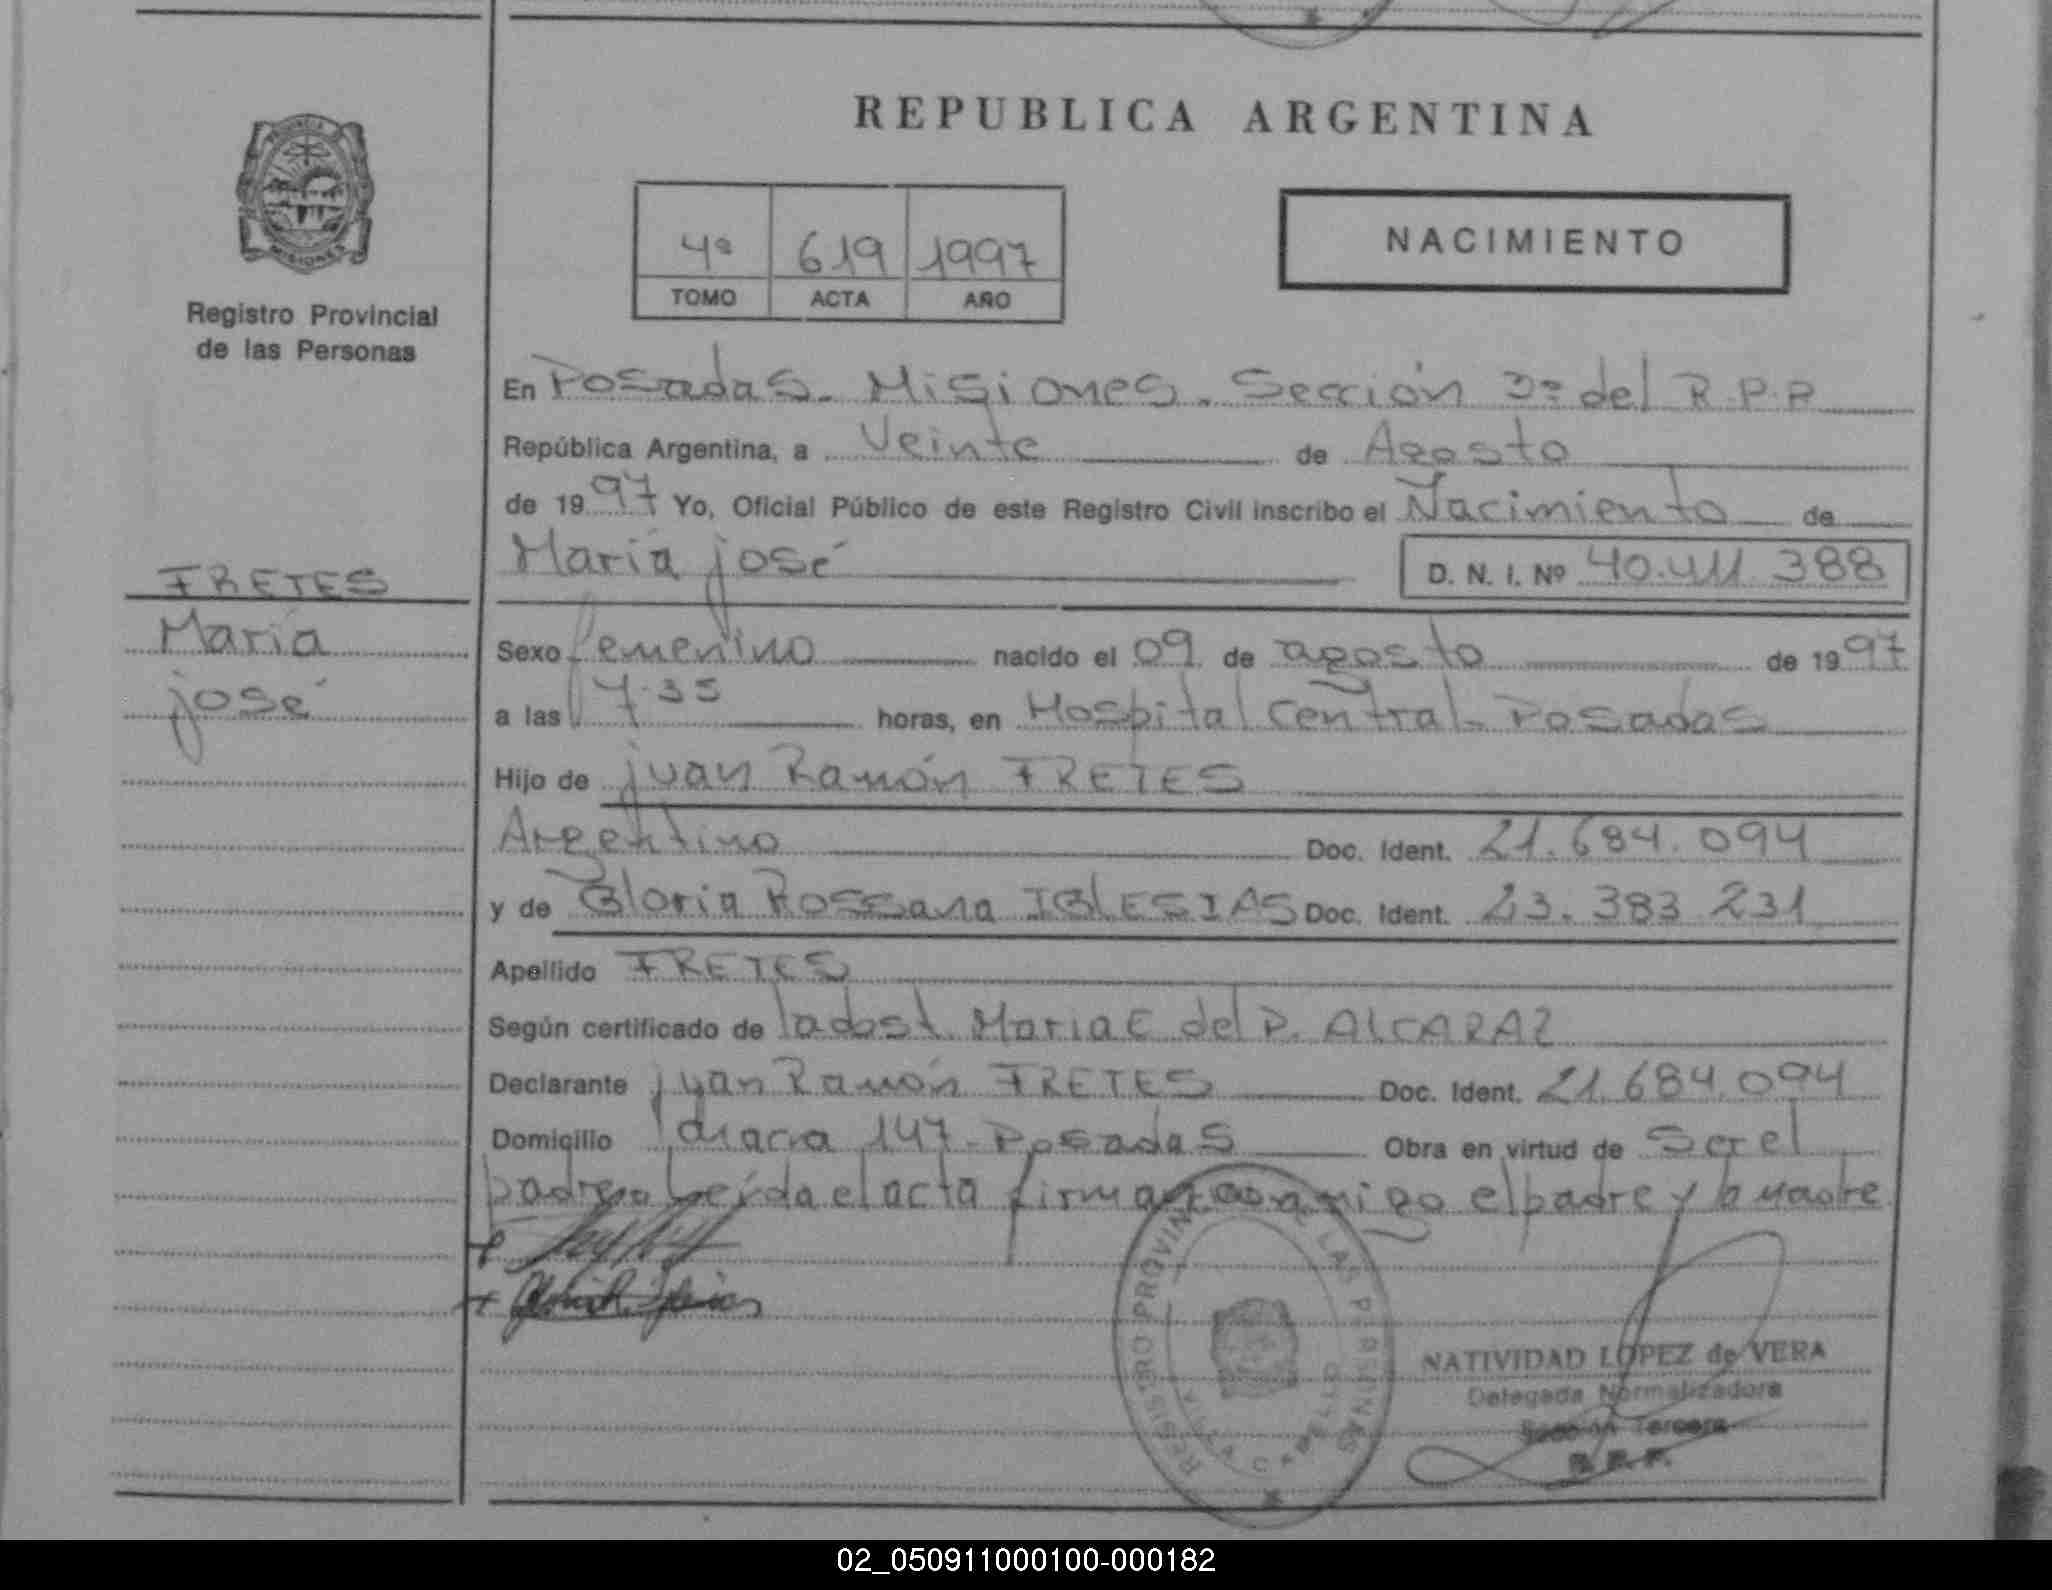 REPUBLICA ARGENTINA
PROVINCIA
MISIONES
Registro Provincial
de las Personas
4º 619 1997
TOMO ACTA AÑO
NACIMIENTO
En Posadas. Misiones. Sección 3º del R.P.P
República Argentina, a Veinte de Agosto
de 1997 Yo, Oficial Público de este Registro Civil inscribo el Nacimiento de
María josé D. N. I. Nº 40.411.388
FRETES
María
josé
Sexo femenino nacido el 09 de agosto de 1997
a las 7.35 horas, en Hospital Central. Posadas
Hijo de juan Ramón FRETES
Argentino Doc. Ident. 21.684.094
y de Gloria Rossana IGLESIAS Doc. Ident. 23.383.231
Apellido FRETES
Según certificado de la obst. Maria E del P. ALCARAZ
Declarante juan Ramón FRETES Doc. Ident. 21.684.094
Domicilio 147 - Posadas Obra en virtud de Ser el
padre. Leída el acta firman conmigo el padre y la madre
REGISTRO PROVINCIAL DE LAS PERSONAS
VILLA CABELLO
NATIVIDAD LOPEZ de VERA
Delegada Normalizadora
Sección Tercera
R.P.P.
02_050911000100-000182